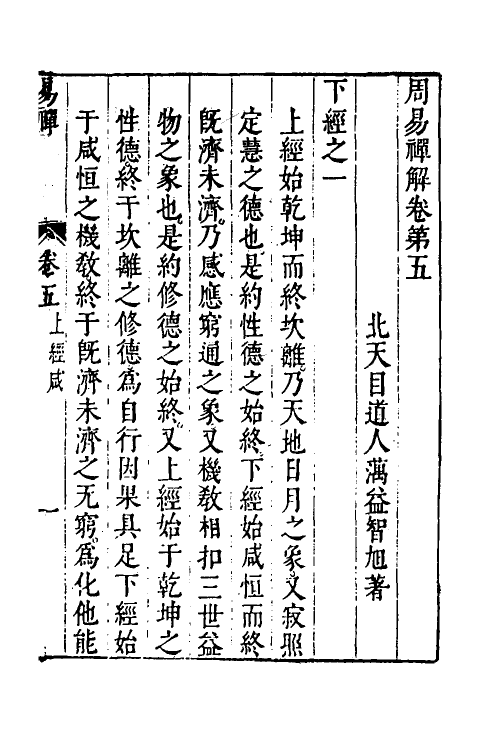 周易禪解卷第五
北天目道人蕅益智旭著
下經之一
上經始乾坤而終坎離乃天地日月之象又寂照
定慧之德也是約性德之始終下經始咸恒而終
旣濟未濟乃感應窮通之象又機敎相扣三世益
物之象也是約修德之始終又上經始于乾坤之
性德終于坎離之修德爲自行因果具足下經始
于咸恒之機敎終于旣濟未濟之无窮爲化他能
易禪
卷五
上經咸
一